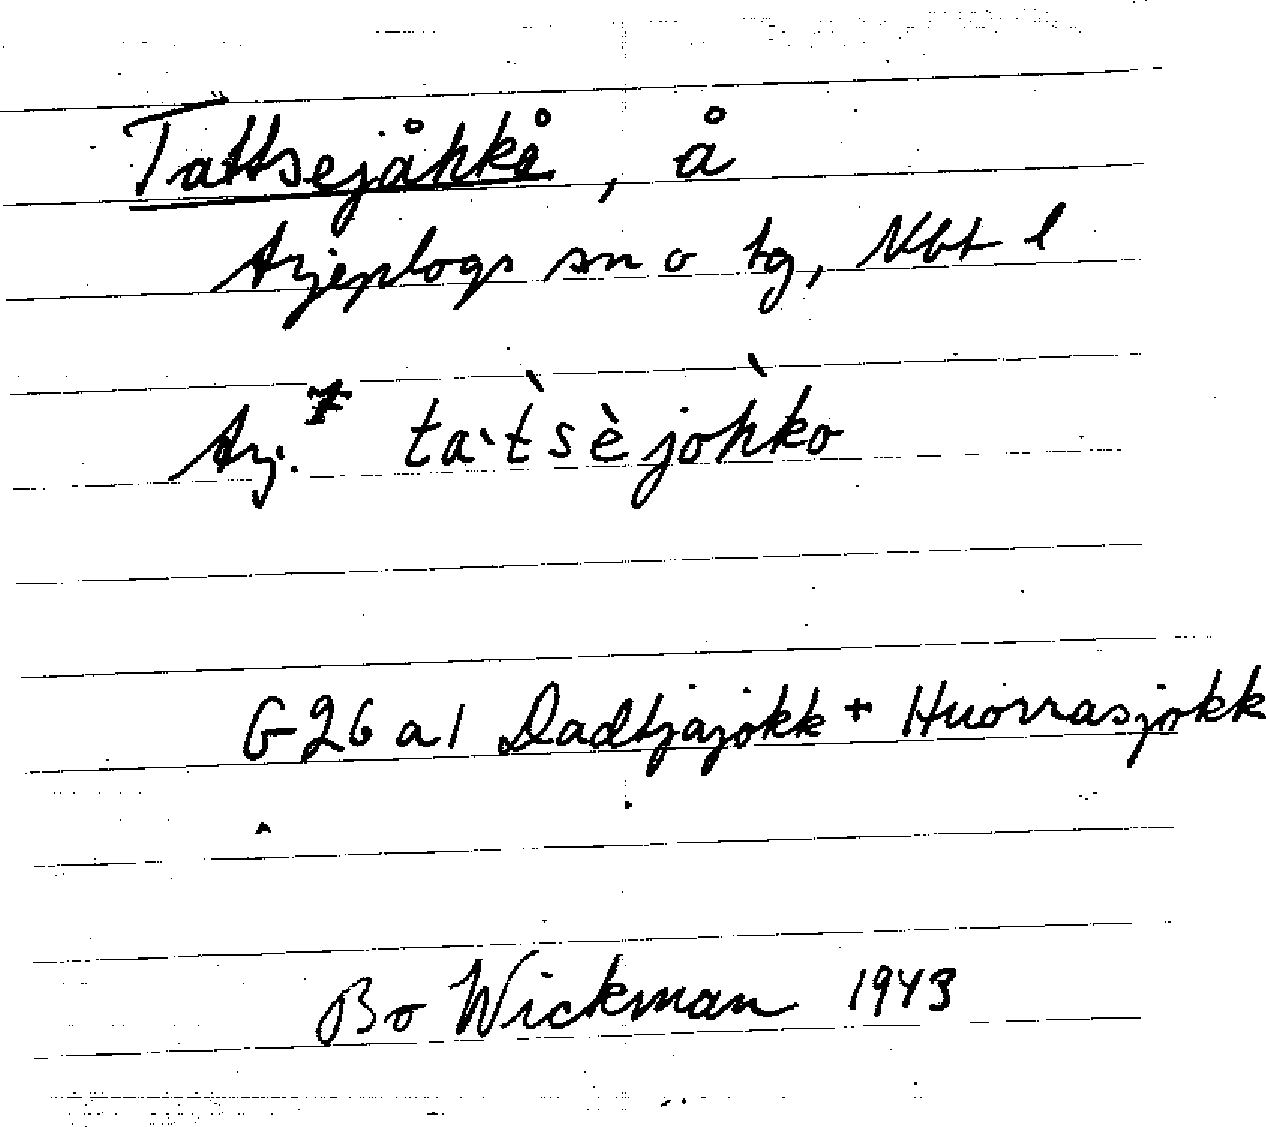 Tattsejåhkå, å
Arjeplogs sn o tg, Nbt l
Arj.⁷ ta·t̀sèjoh̀ko
G26 a 1 Dadtjajokk + Huorrasjokk
Bo Wickman 1943